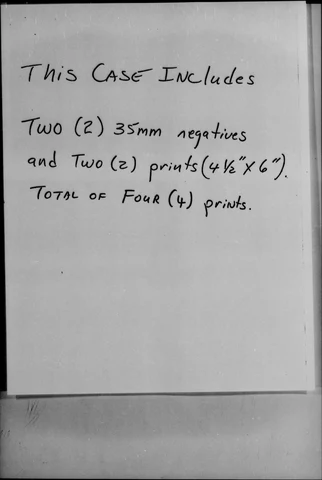 This CASE INCludes
Two (2) 35mm negatives
and Two (2) prints (4 1/2" X 6").
TOTAL OF FOUR (4) prints.